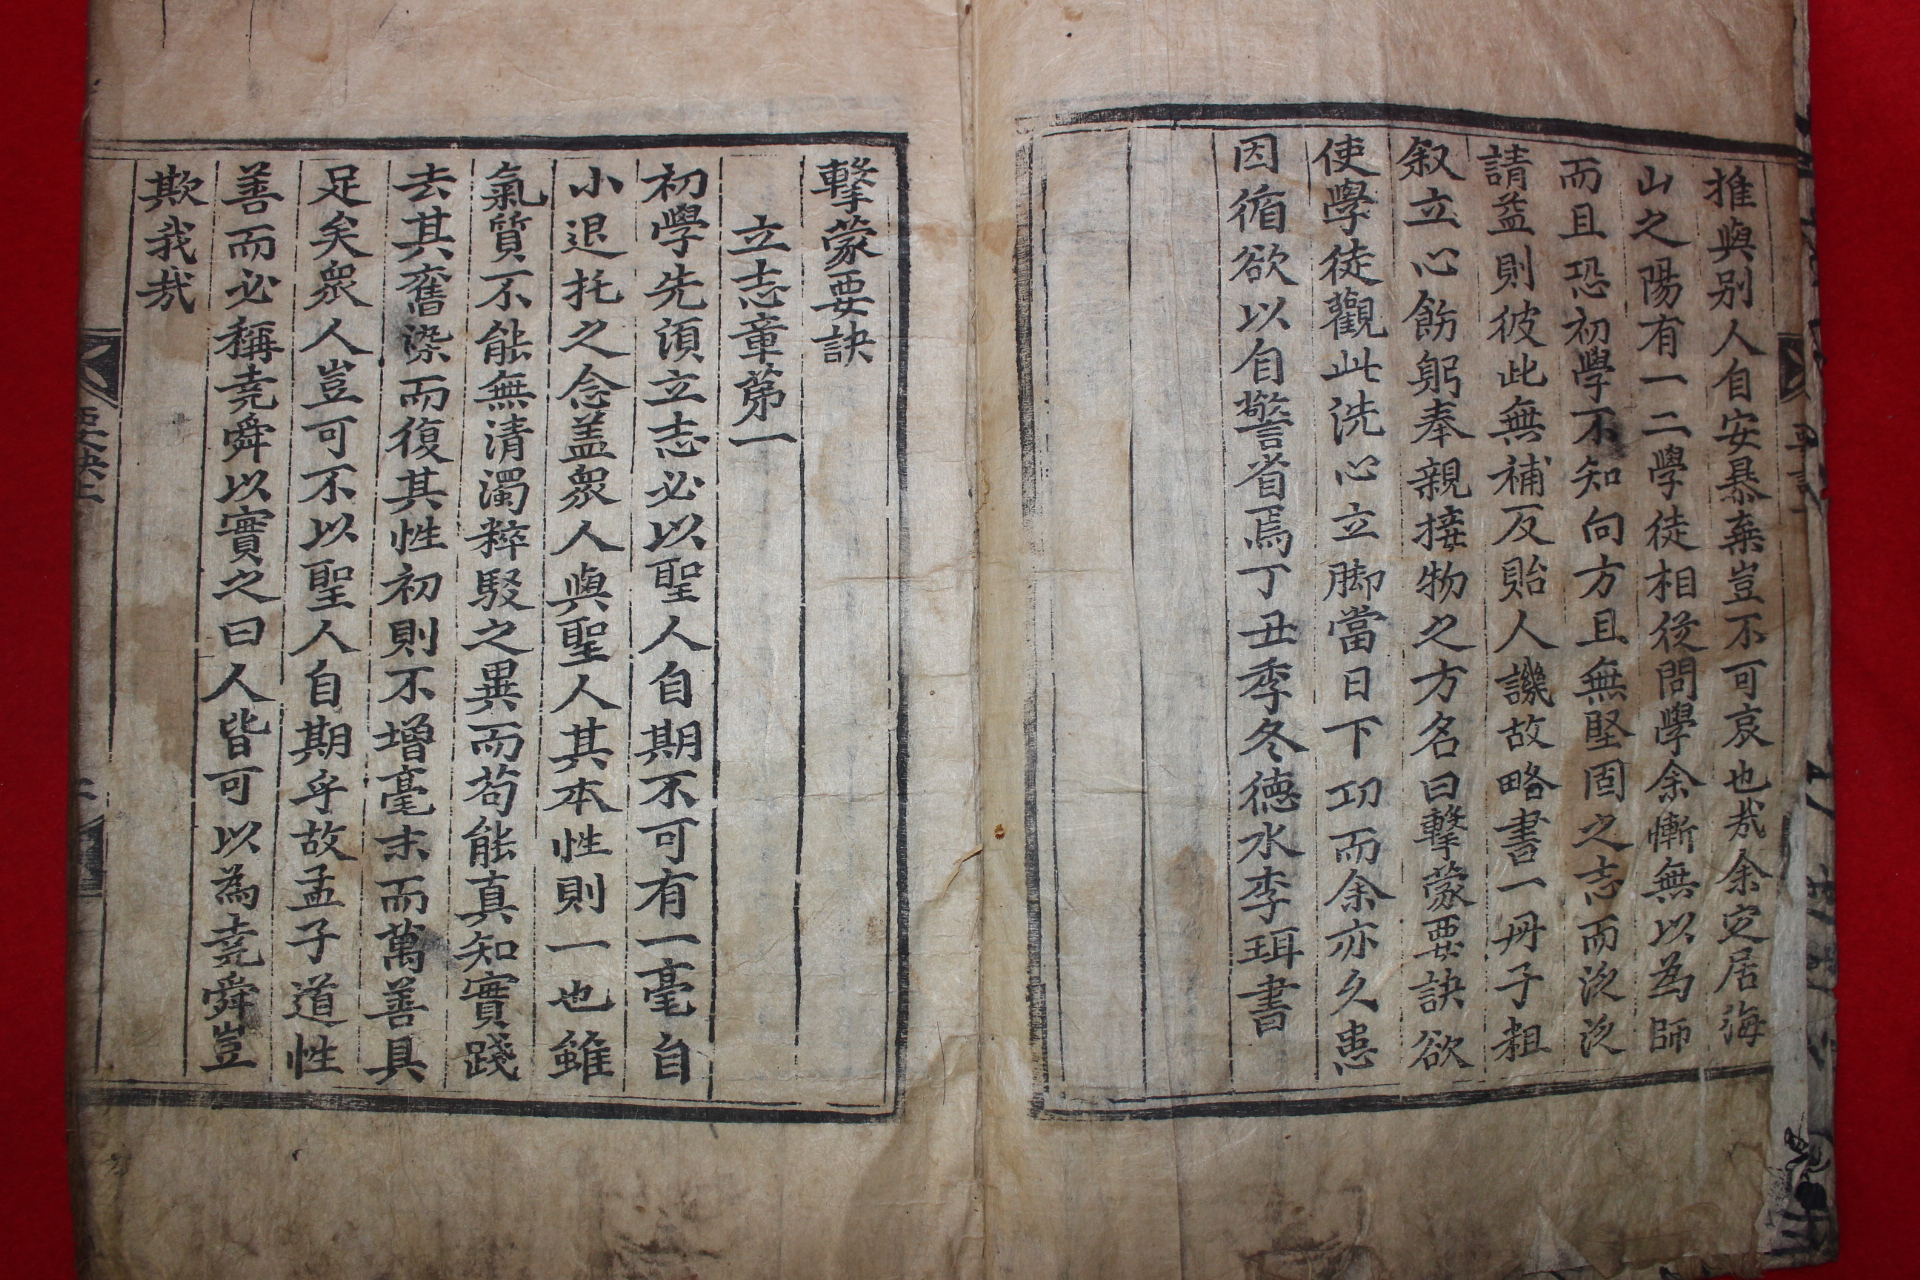 推與別人自安暴棄豈不可哀也㦲余定居海
山之陽有一二學徒相從問學余慚無以為師
而且恐初學不知向方且無堅固之志而泛泛
請益則彼此無補反貽人譏故略書一冊子粗
叙立心飭躬奉親接物之方名曰擊蒙要訣欲
使學徒觀此洗心立脚當日下功而余亦久患
因循欲以自警省焉丁丑季冬德水李珥書
擊蒙要訣
立志章第一
初學先湏立志必以聖人自期不可有一毫自
小退托之念盖衆人與聖人其本性則一也雖
氣質不能無清濁粹駁之異而苟能真知實踐
去其舊染而復其性初則不增毫末而萬善具
足矣衆人豈可不以聖人自期乎故孟子道性
善而必稱堯舜以實之曰人皆可以為堯舜豈
欺我㦲
要訣上